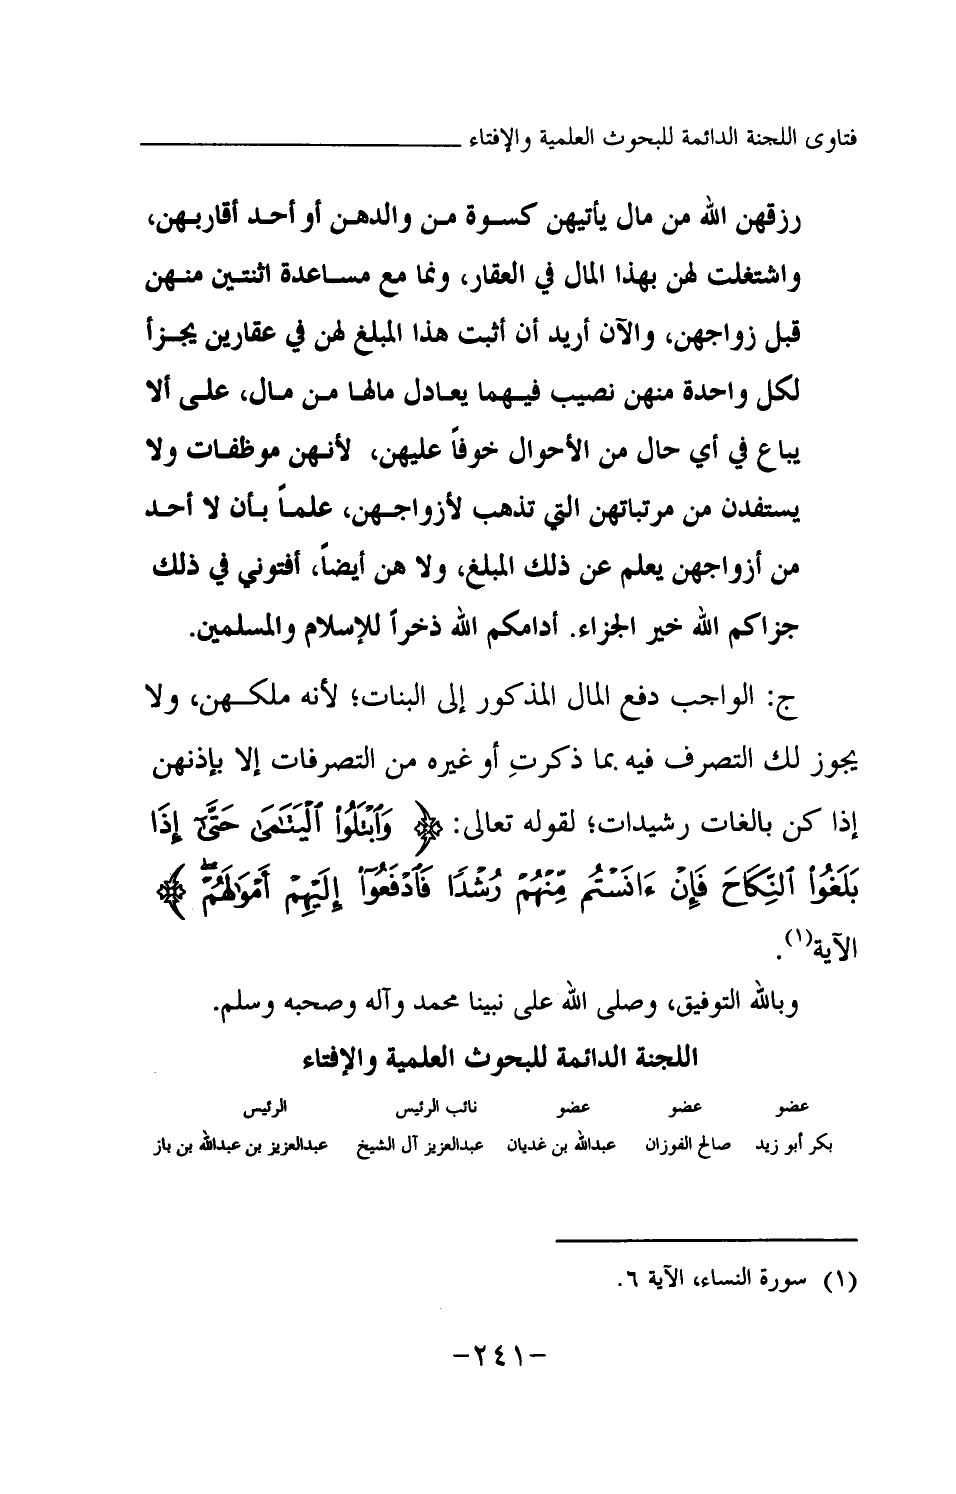 فتاوى اللجنة الدائمة للبحوث العلمية والإفتاء
رزقهن الله من مال يأتيهن كسوة من والدهن أو أحد أقاربهن،
واشتغلت لهن بهذا المال في العقار، ونما مع مساعدة اثنتين منهن
قبل زواجهن، والآن أريد أن أثبت هذا المبلغ لهن في عقارين يجزأ
لكل واحدة منهن نصيب فيهما يعادل مالها من مال، على ألا
يباع في أي حال من الأحوال خوفاً عليهن، لأنهن موظفات ولا
يستفدن من مرتباتهن التي تذهب لأزواجهن، علماً بأن لا أحد
من أزواجهن يعلم عن ذلك المبلغ، ولا هن أيضاً، أفتوني في ذلك
جزاكم الله خير الجزاء. أدامكم الله ذخراً للإسلام والمسلمين.
ج: الواجب دفع المال المذكور إلى البنات؛ لأنه ملكهن، ولا
يجوز لك التصرف فيه بما ذكرتِ أو غيره من التصرفات إلا بإذنهن
إذا كن بالغات رشيدات؛ لقوله تعالى: ﴿ وَٱبْتَلُوا۟ ٱلْيَتَـٰمَىٰ حَتَّىٰٓ إِذَا
بَلَغُوا۟ ٱلنِّكَاحَ فَإِنْ ءَانَسْتُم مِّنْهُمْ رُشْدًا فَٱدْفَعُوٓا۟ إِلَيْهِمْ أَمْوَٰلَهُمْ ۖ ﴾
الآية(١).
وبالله التوفيق، وصلى الله على نبينا محمد وآله وصحبه وسلم.
اللجنة الدائمة للبحوث العلمية والإفتاء
عضو عضو عضو نائب الرئيس الرئيس
بكر أبو زيد صالح الفوزان عبدالله بن غديان عبدالعزيز آل الشيخ عبدالعزيز بن عبدالله بن باز
(١) سورة النساء، الآية ٦.
-٢٤١-